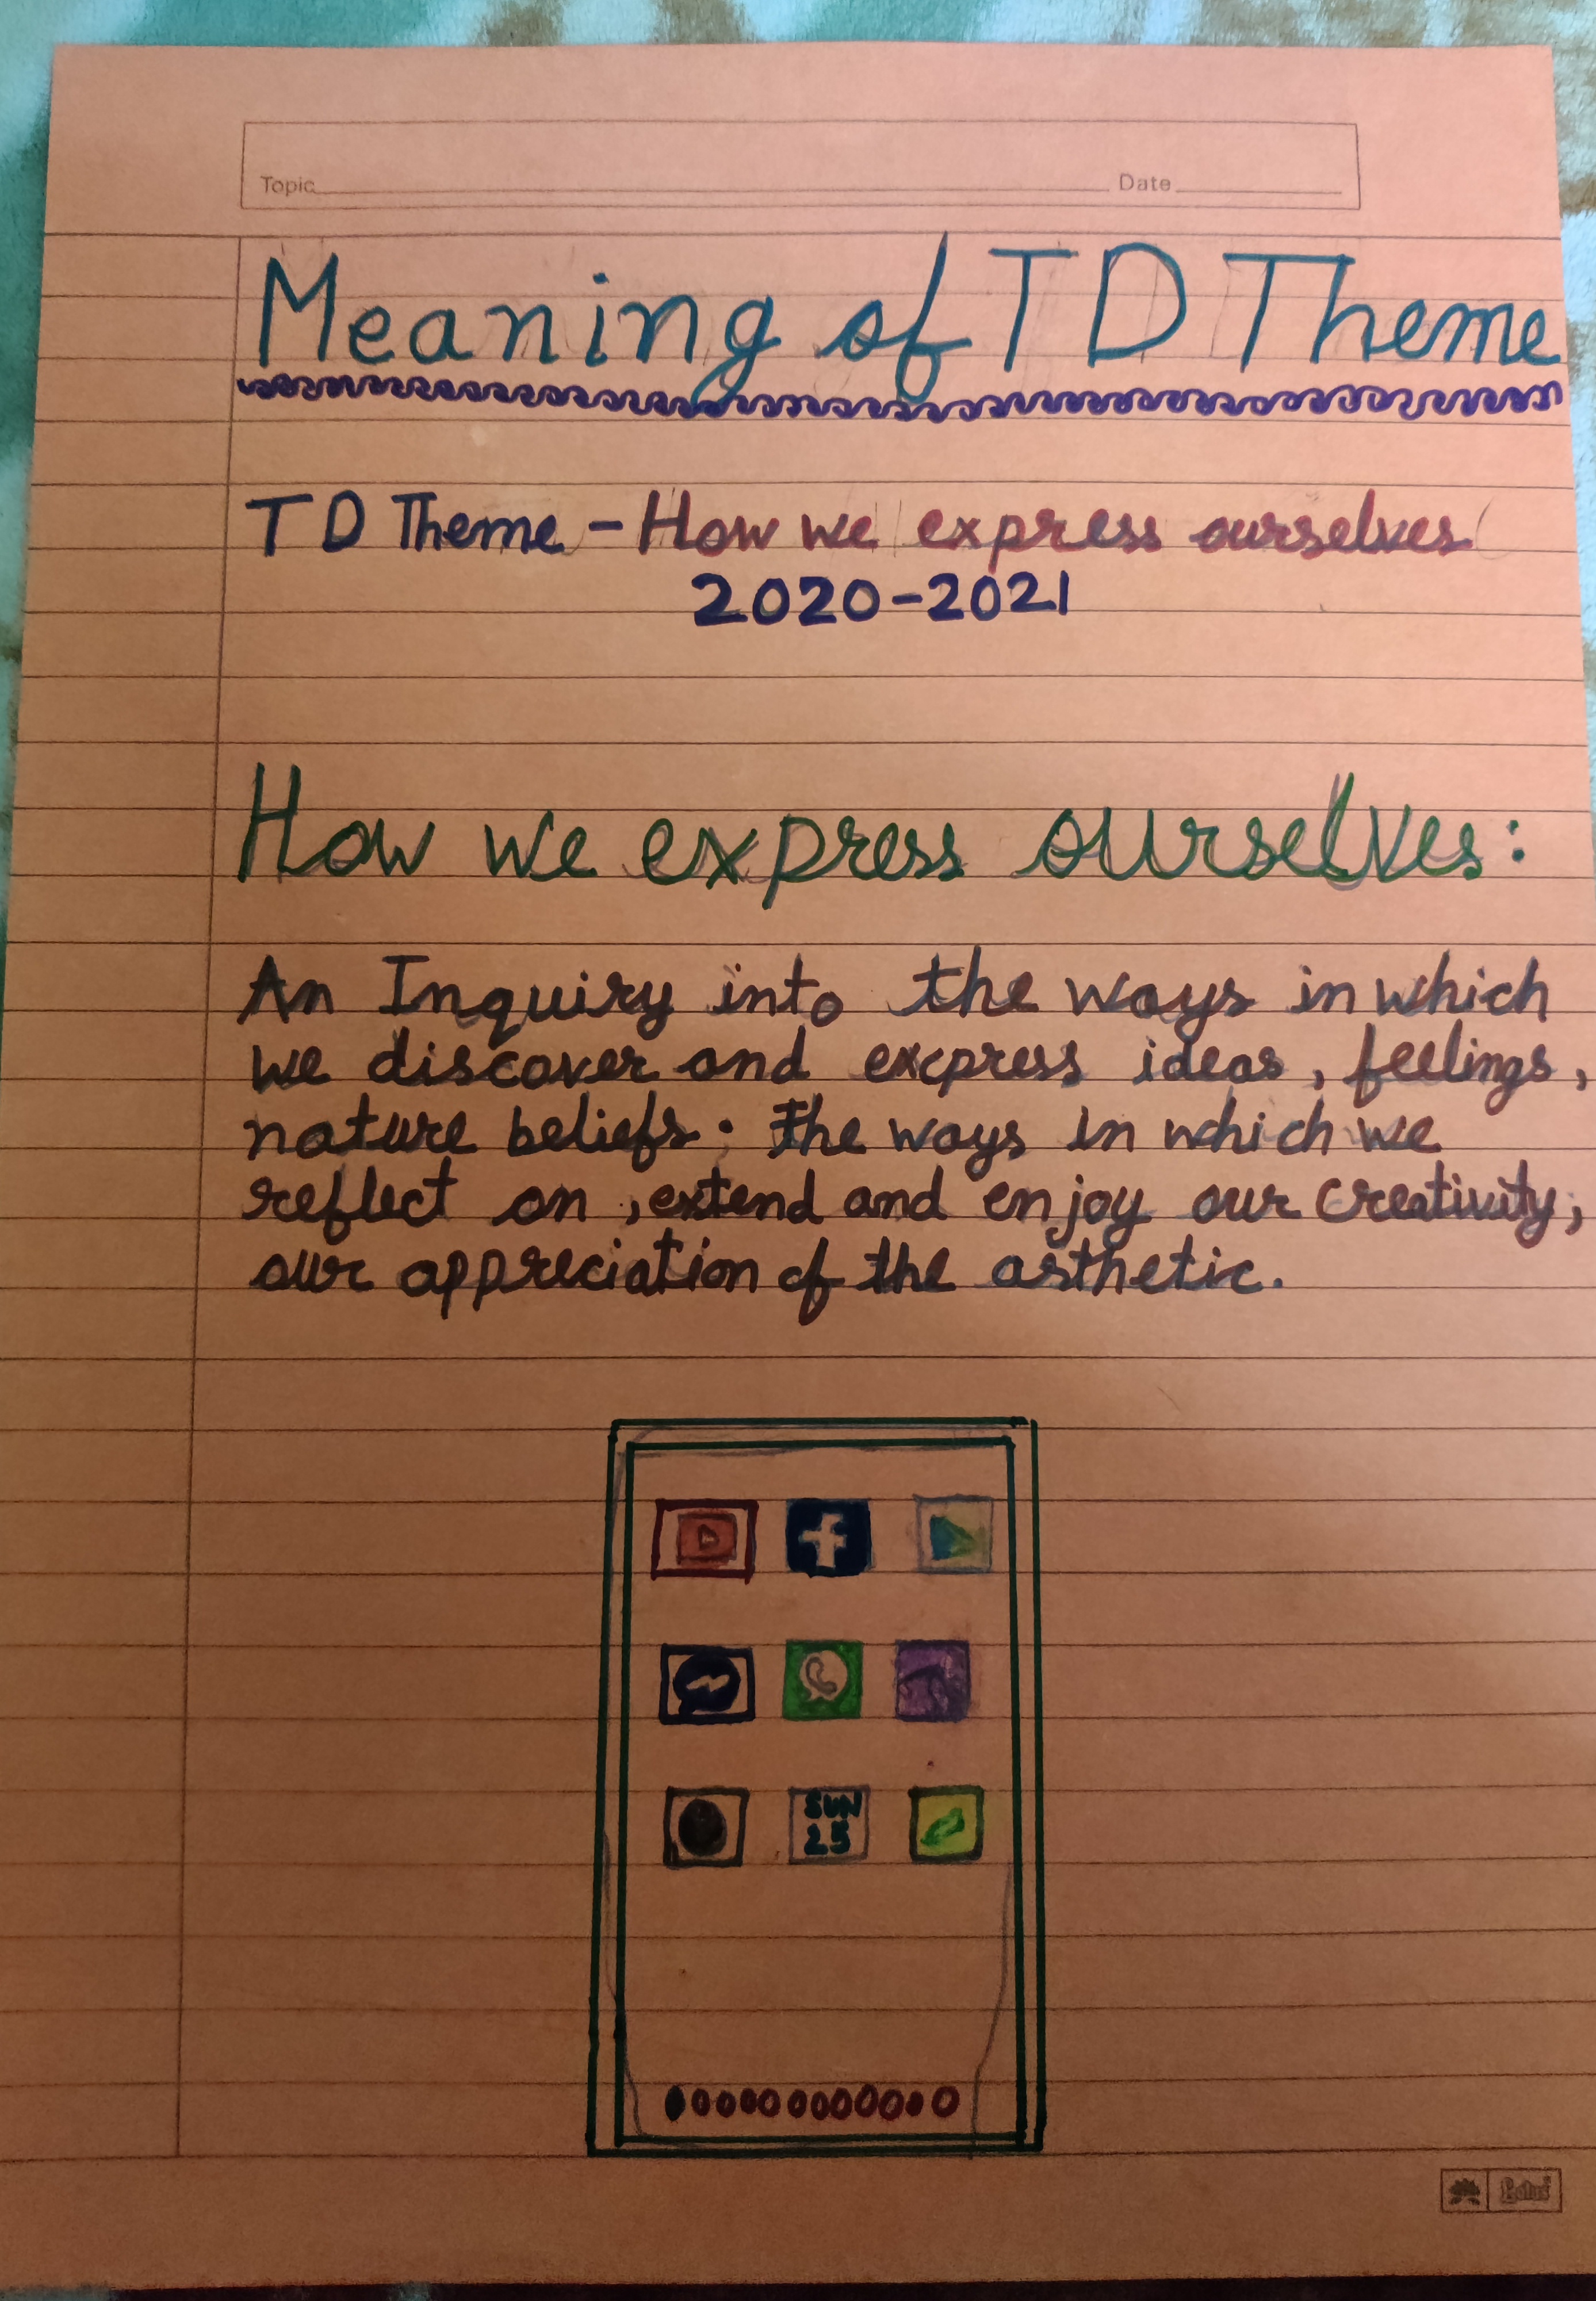 Topic Date
Meaning of TD Theme
TD Theme - How we express ourselves
2020-2021
How we express ourselves:
An Inquiry into the ways in which
we discover and express ideas, feelings,
nature beliefs. The ways in which we
reflect on, extend and enjoy our creativity,
our appreciation of the asthetic.
f
SUN
25
Lotus